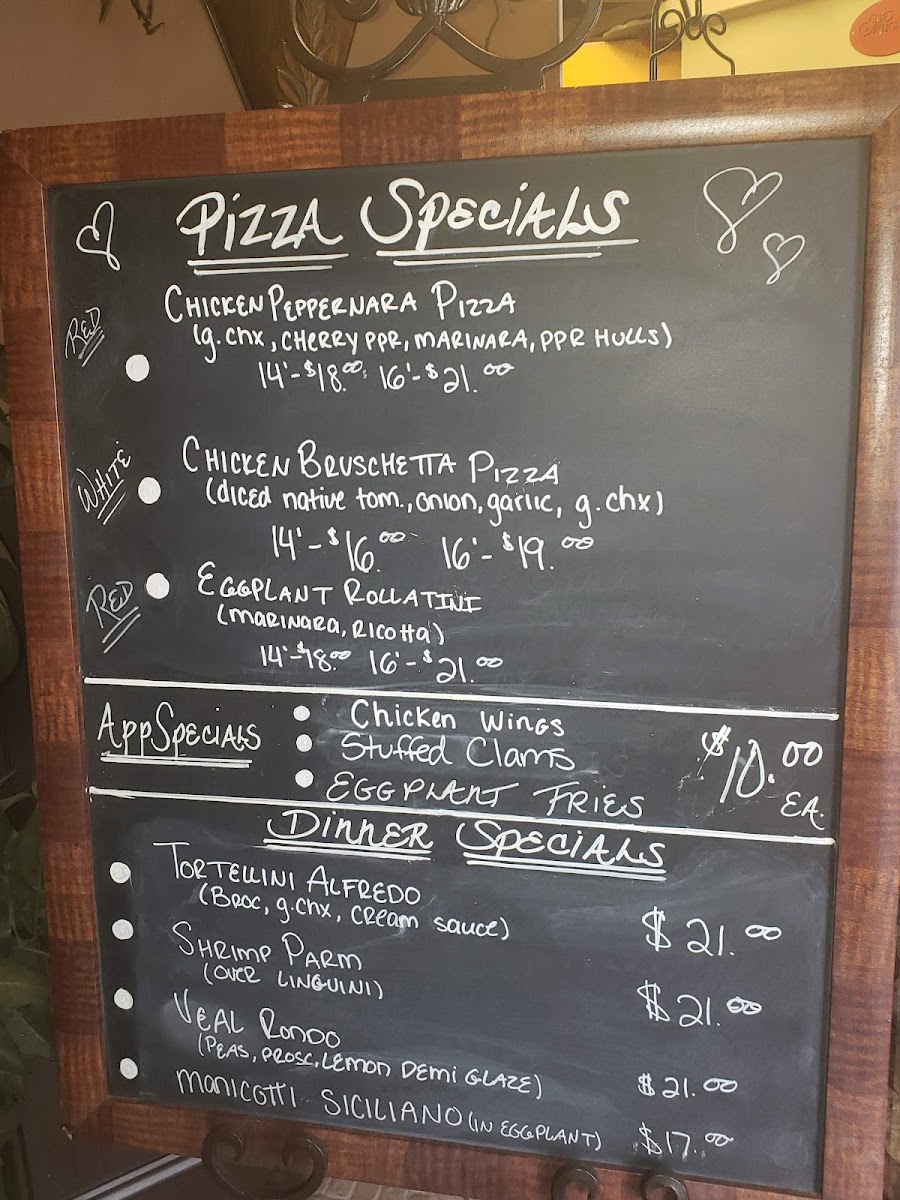 Pizza Specials
Red
Chicken Peppernara Pizza
(g.chx, cherry ppr, marinara, ppr hulls)
14'-$18.00 16'-$21.00
White
Chicken Bruschetta Pizza
(diced native tom., onion, garlic, g.chx)
14'-$16.00 16'-$19.00
Red
Eggplant Rollatini
(marinara, ricotta)
14'-$18.00 16'-$21.00
App Specials
Chicken Wings
Stuffed Clams
Eggplant Fries
$10.00 EA.
Dinner Specials
Tortellini Alfredo
(Broc, g.chx, cream sauce) $21.00
Shrimp Parm
(over linguini) $21.00
Veal Rondo
(Peas, prosc, lemon demi glaze) $21.00
Manicotti Siciliano (in eggplant) $17.00